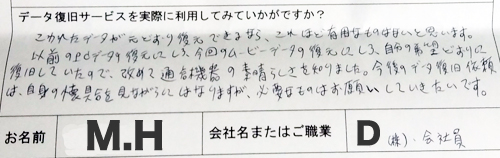 データ復旧サービスを実際に利用してみていかがですか?
こわれたデータが元どおり復元できるなら、これほど有用なものはないと思います。
以前のPCデータの復元にしろ、今回のムービーデータの復元にしろ、自分の希望どおりに
復旧していたので、改めて通信機器の素晴らしさを知りました。今後のデータ復旧依頼
は、自身の懐具合を見ながらにはなりますが、必要なものはお願いしていきたいです。
お名前 M.H 会社名またはご職業 D (株)・会社員